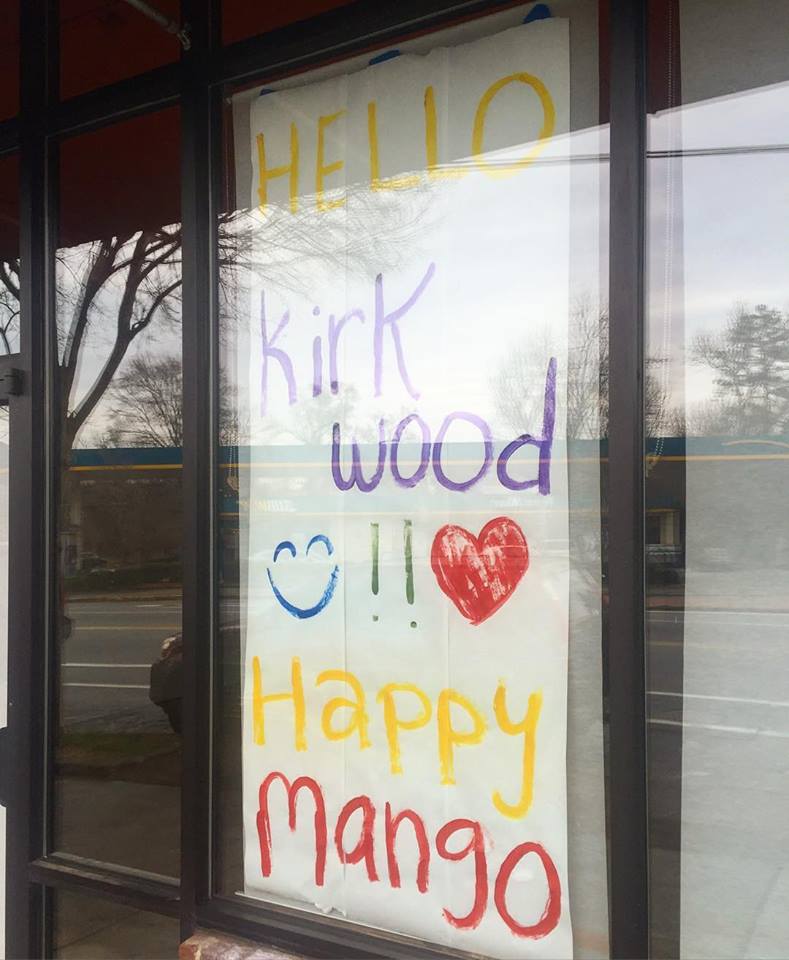 HELLO
Kirk
wood
!!
Happy
Mango